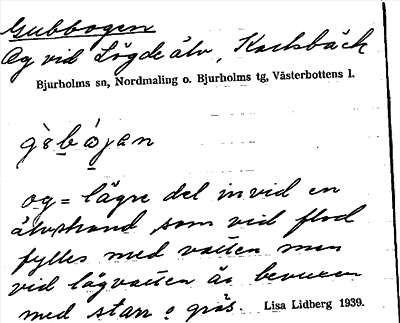 Gubbogen
Og vid Lögde älv, Karlsbäck
Bjurholms sn, Nordmaling o. Bjurholms tg, Västerbottens l.
og = lägre del invid en
älvstrand som vid flod
fylles med vatten men
vid lågvatten är bevuxen
med starr o gräs. Lisa Lidberg 1939.